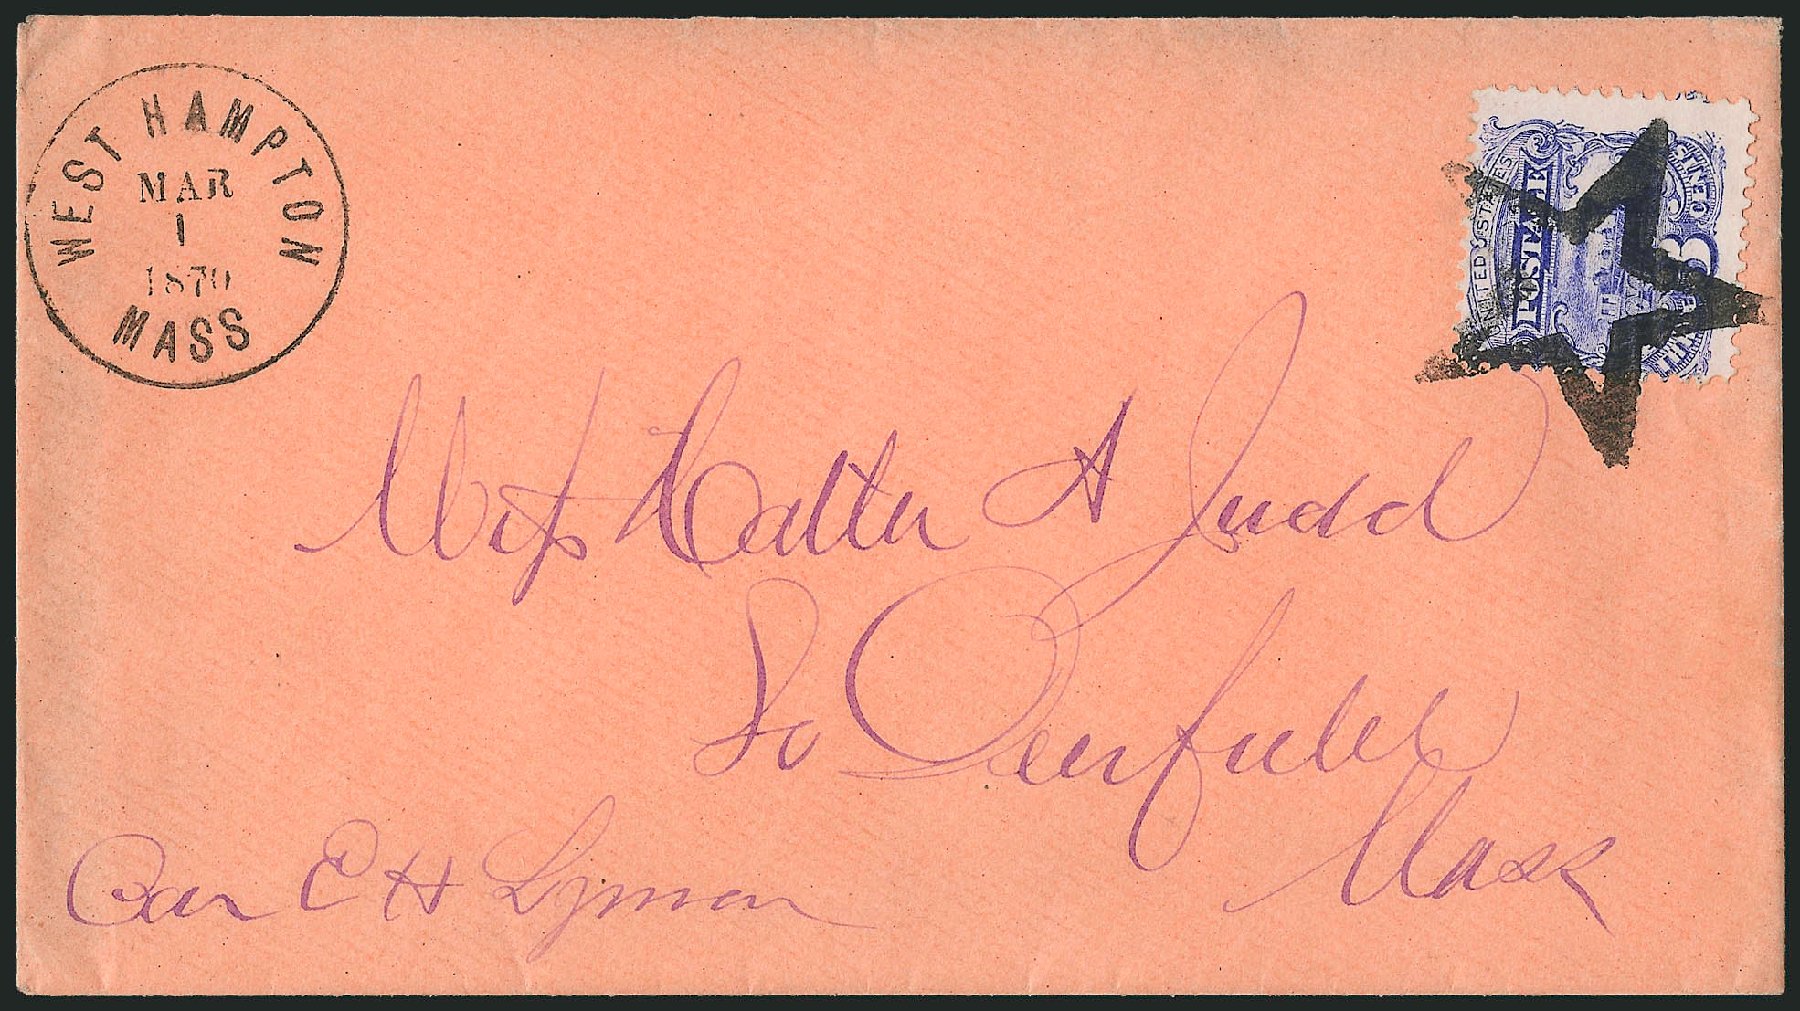 WEST HAMPTON
MAR
1
1870
MASS
UNITED STATES
POSTAGE
3
CENTS
Miss Hattie A Judd
So Deerfield
Mass
Car E H Lyman